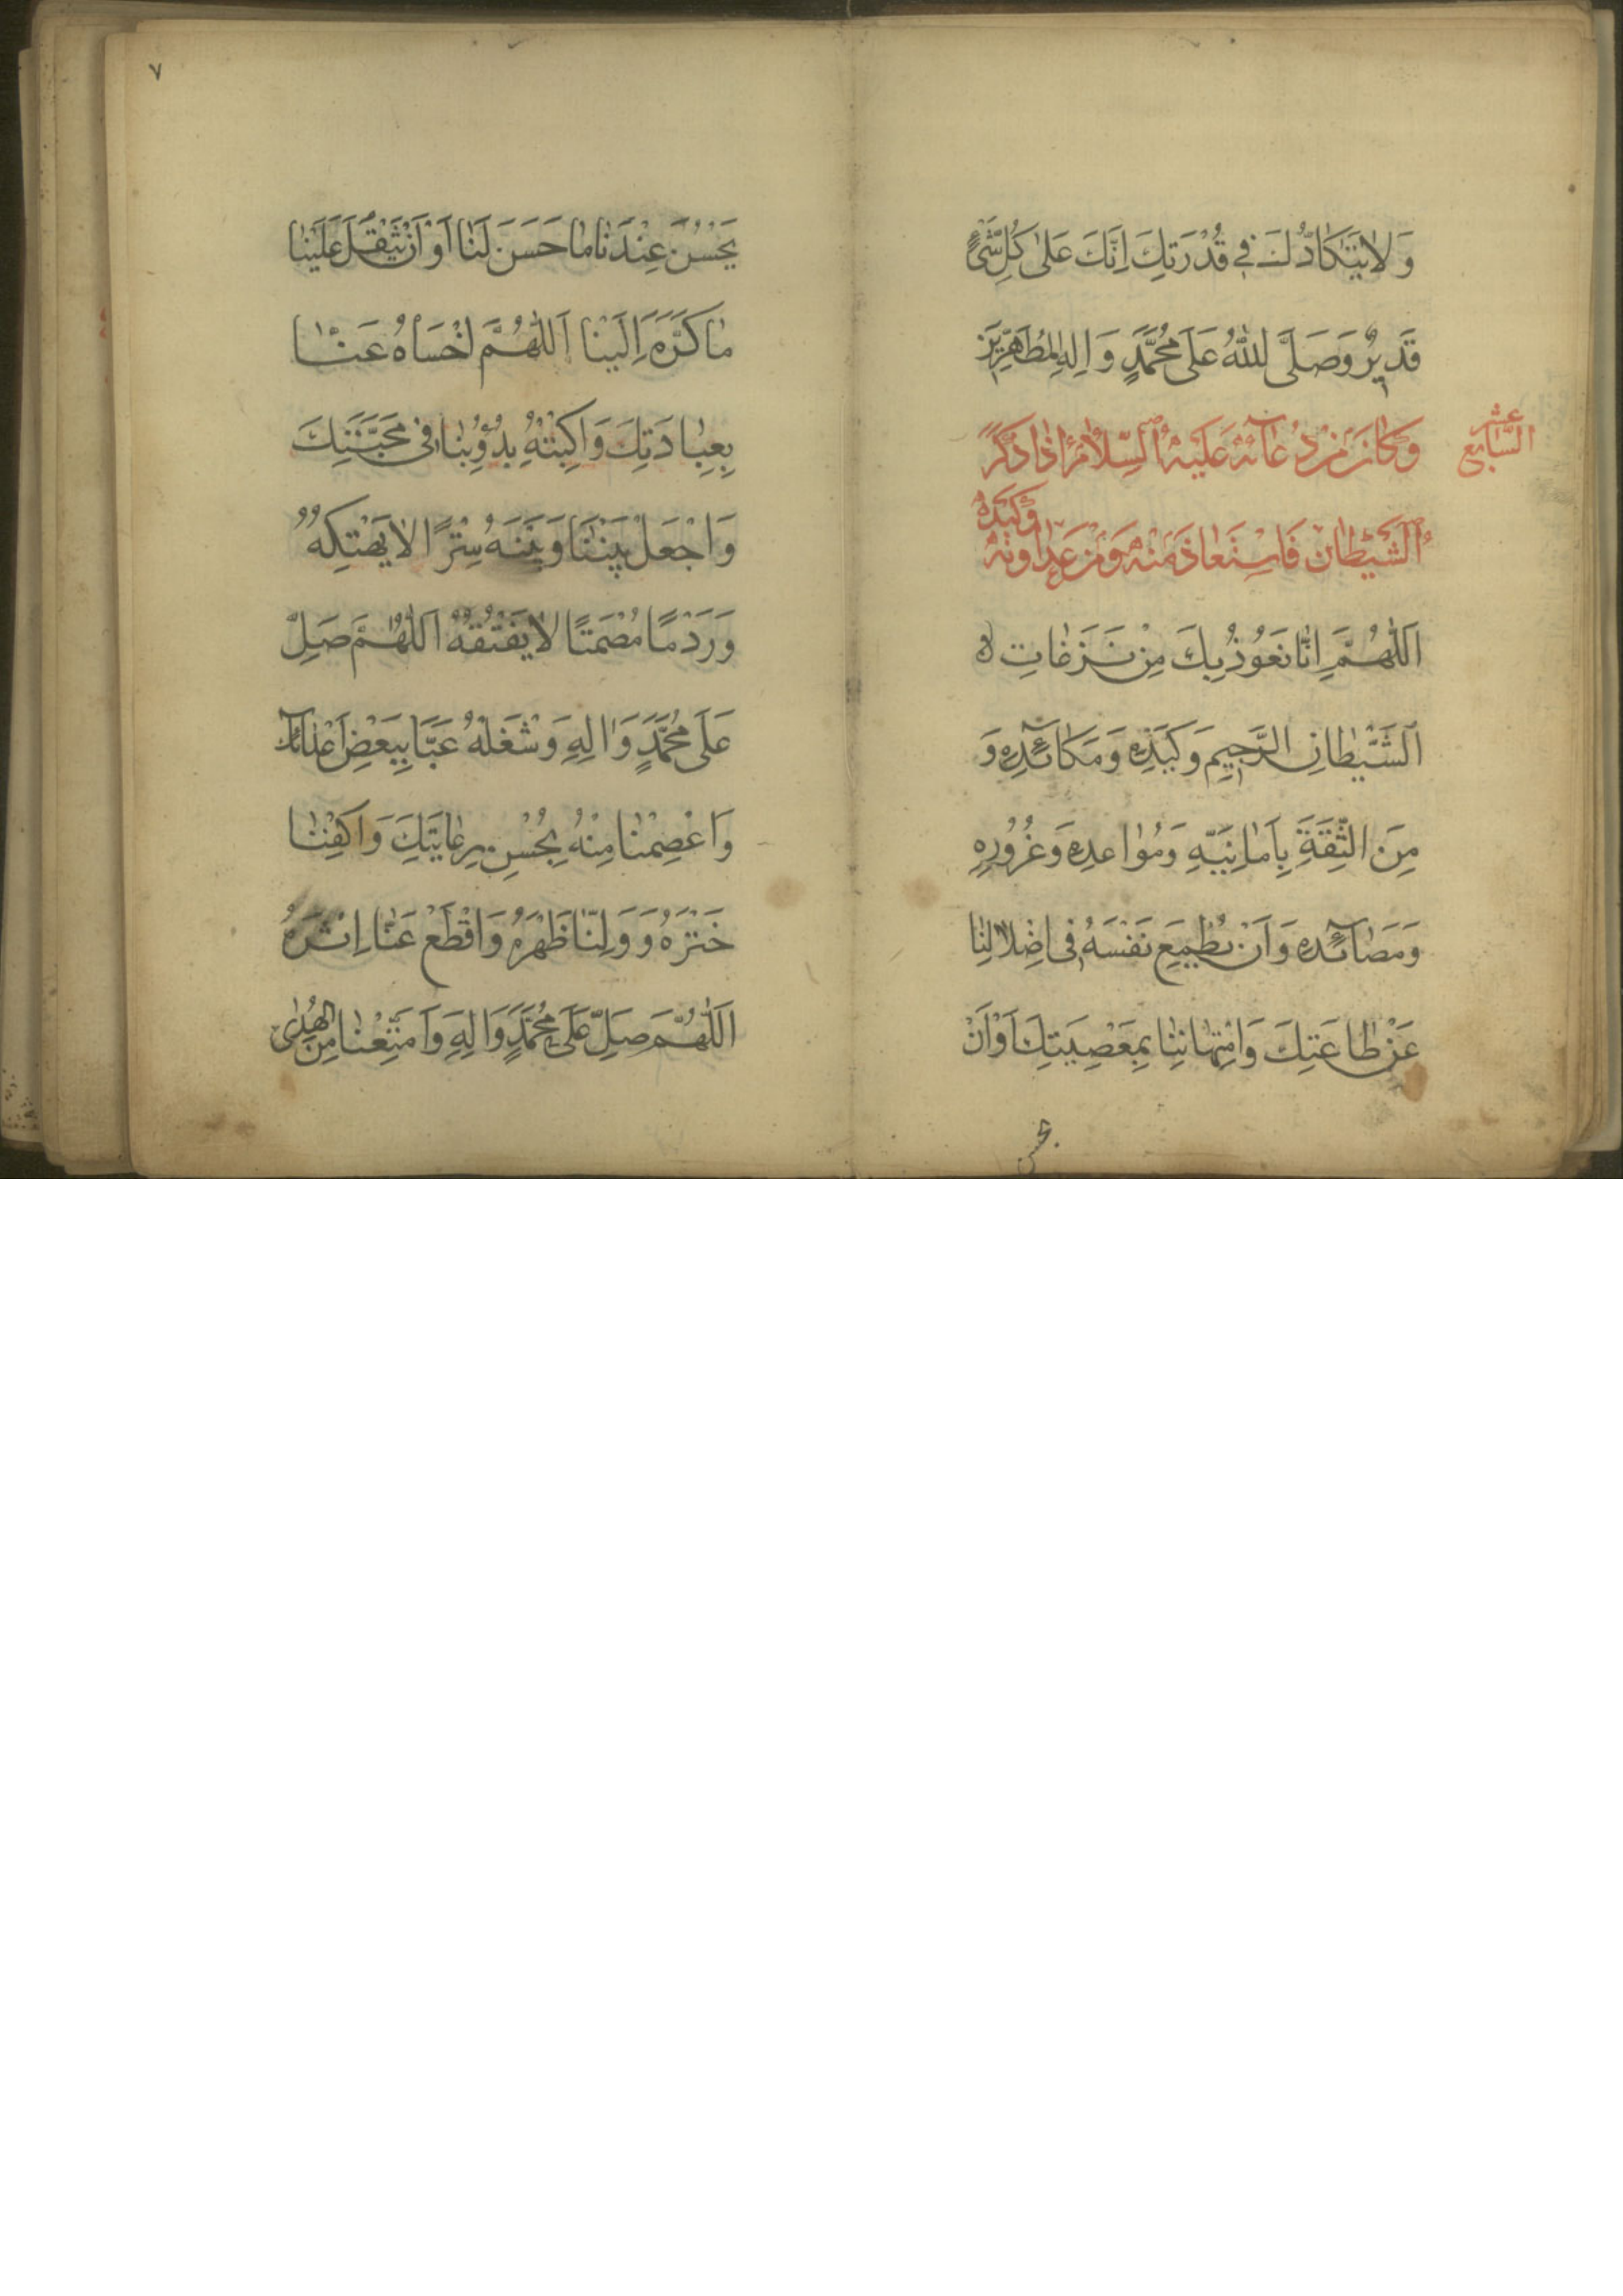 وَلَا يَتَكَأَّدُكَ فِي قُدْرَتِكَ اِنَّكَ عَلىٰ كُلِّ شَيْءٍ
قَدِيرٌ وَصَلَّى اللهُ عَلىٰ مُحَمَّدٍ وَالِهِ المُطَهَّرِينَ
السَّابِع عشر
وَكَانَ مِنْ دُعَائِهِ عَلَيْهِ السَّلَامُ اِذَا ذُكِرَ
الشَّيْطَانُ فَاسْتَعَاذَ مِنْهُ وَمِنْ عَدَاوَتِهِ وَكَيْدِهِ
اَللّٰهُمَّ اِنَّا نَعُوذُ بِكَ مِنْ نَزَغَاتِ
الشَّيْطَانِ الرَّجِيمِ وَكَيْدِهِ وَمَكَائِدِهِ وَ
مِنَ الثِّقَةِ بِاَمَانِيِّهِ وَمَوَاعِدِهِ وَغُرُورِهِ
وَمَصَائِدِهِ وَاَنْ يُطْمِعَ نَفْسَهُ فِى اِضْلَالِنَا
عَنْ طَاعَتِكَ وَامْتِهَانِنَا بِمَعْصِيَتِكَ اَوْ اَنْ
يحسن
٧
يَحْسُنَ عِنْدَنَا مَا حَسَّنَ لَنَا اَوْ اَنْ يَثْقُلَ عَلَيْنَا
مَا كَرَّهَ اِلَيْنَا اَللّٰهُمَّ اخْسَأْهُ عَنَّا
بِعِبَادَتِكَ وَاكْبِتْهُ بِدُؤُبِنَا فِى مَحَبَّتِكَ
وَاجْعَلْ بَيْنَنَا وَبَيْنَهُ سِتْرًا لَا يَهْتِكُهُ
وَرَدْمًا مُصْمَتًا لَا يَفْتُقُهُ اَللّٰهُمَّ صَلِّ
عَلىٰ مُحَمَّدٍ وَالِهِ وَشْغَلْهُ عَنَّا بِبَعْضِ اَعْدَائِكَ
وَاعْصِمْنَا مِنْهُ بِحُسْنِ رِعَايَتِكَ وَاكْفِنَا
خَتْرَهُ وَوَلِّنَا ظَهْرَهُ وَاقْطَعْ عَنَّا اِثْرَهُ
اَللّٰهُمَّ صَلِّ عَلىٰ مُحَمَّدٍ وَالِهِ وَاَمْتِعْنَا مِنَ الهُدىٰ